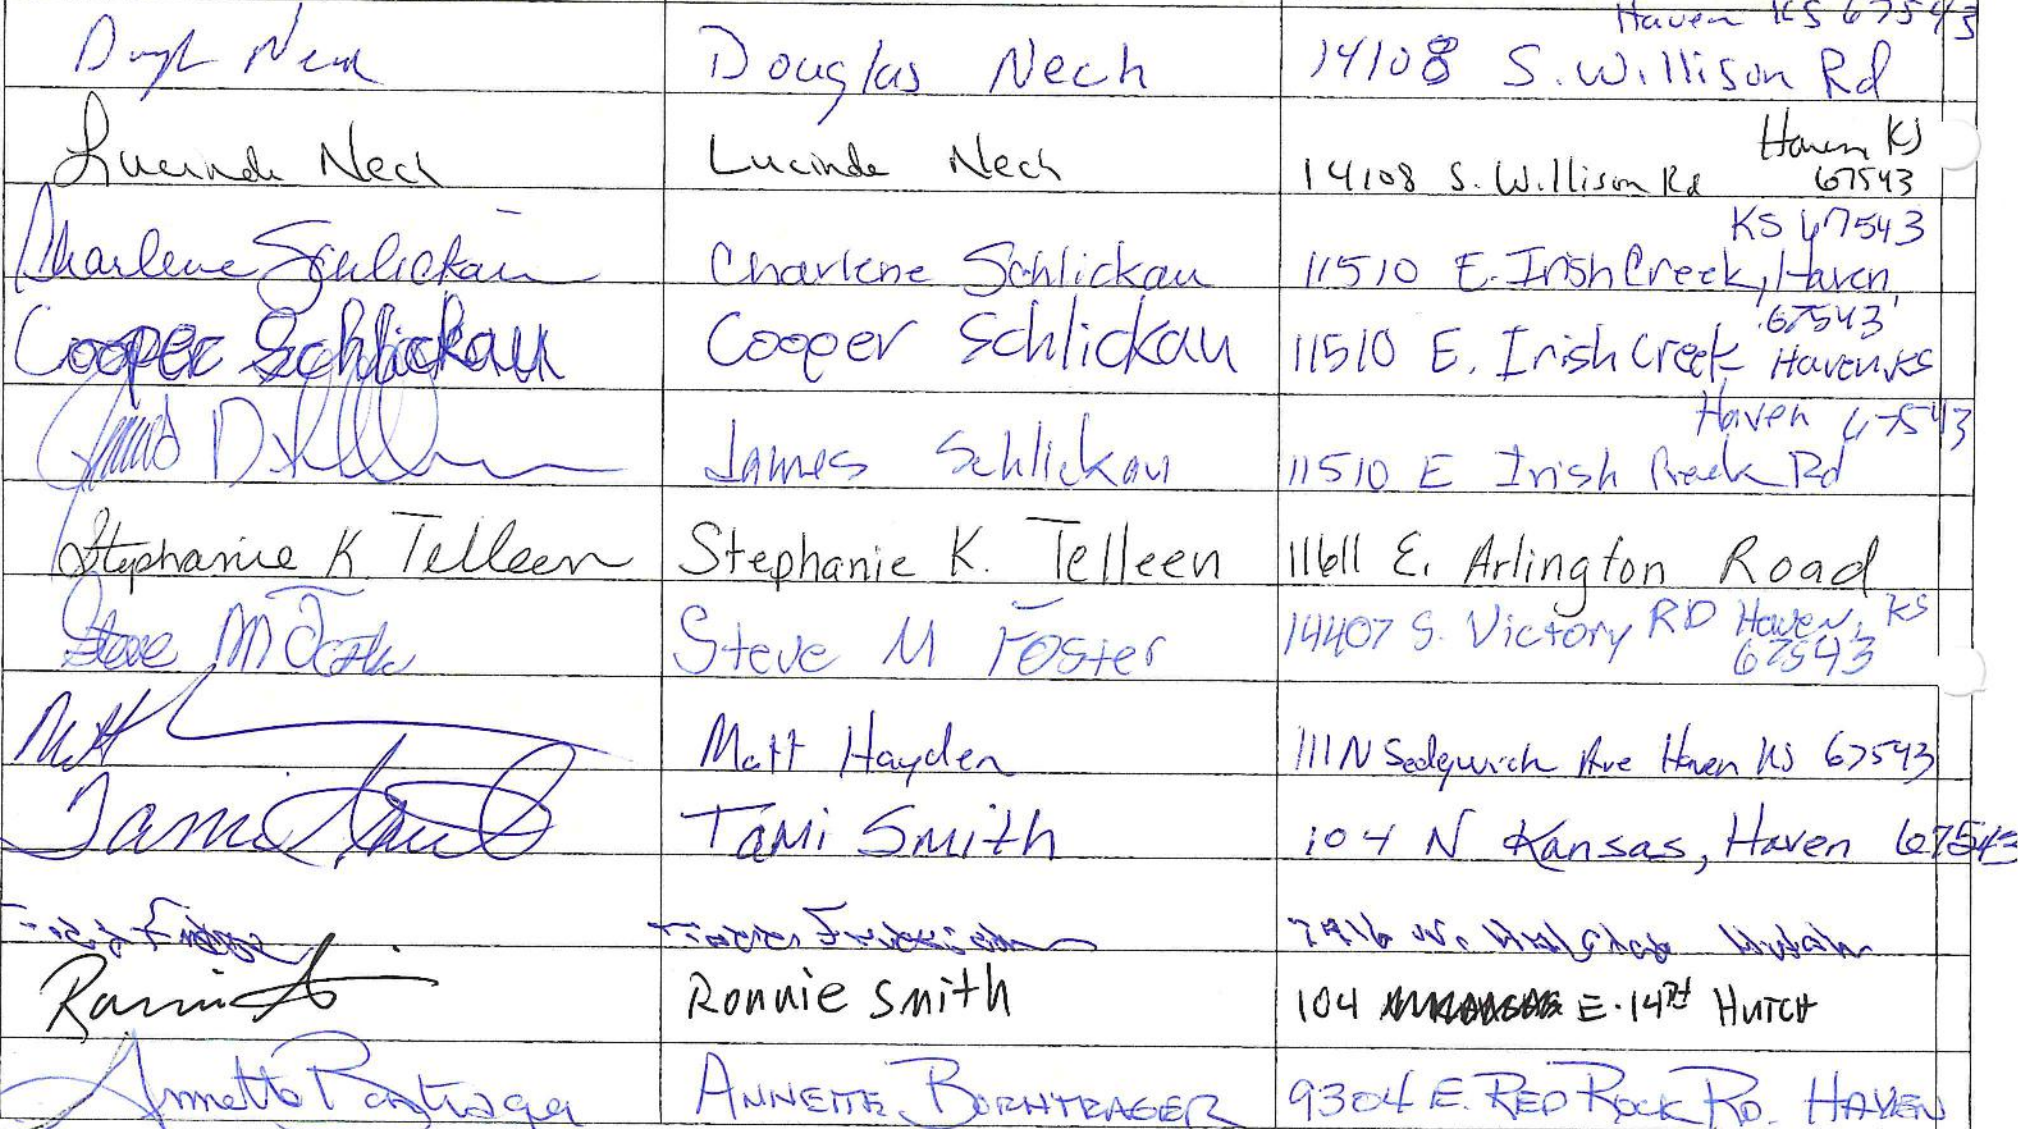 Haven KS 67543
Douglas Nech 14108 S. Willison Rd
Haven KS
Lucinda Nech Lucinda Nech 14108 S. Willison Rd 67543
KS 67543
Charlene Schlickau Charlene Schlickau 11510 E. Irish Creek, Haven,
67543
Cooper Schlickau Cooper Schlickau 11510 E. Irish Creek Haven KS
Haven 67543
James Schlickau 11510 E Irish Creek Rd
Stephanie K Telleen Stephanie K. Telleen 11611 E. Arlington Road
Steve M Foster Steve M Foster 14407 S. Victory RD Haven, KS
67543
Matt Matt Hayden 111 N Sedgwick Ave Haven KS 67543
Tami Smith Tami Smith 104 N Kansas, Haven 67543
Ronnie Smith 104 E. 14th HUTCH
Annette Borntrager ANNETTE BORNTRAGER 9304 E. RED ROCK RD. HAVEN